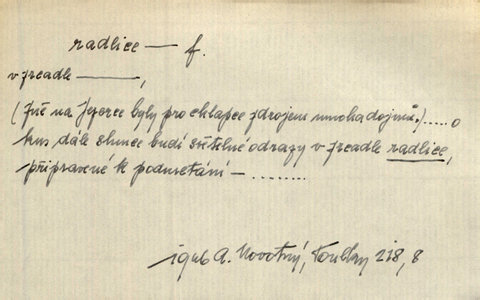 radlice — f.
v zrcadle ———,
(Žně na Jezerce byly pro chlapce zdrojem mnoha dojmů.)..... o
kus dále slunce budí světelné odrazy v zrcadle radlice,
připravené k podmetání — ........
A. Novotný, Toulky 218, 8